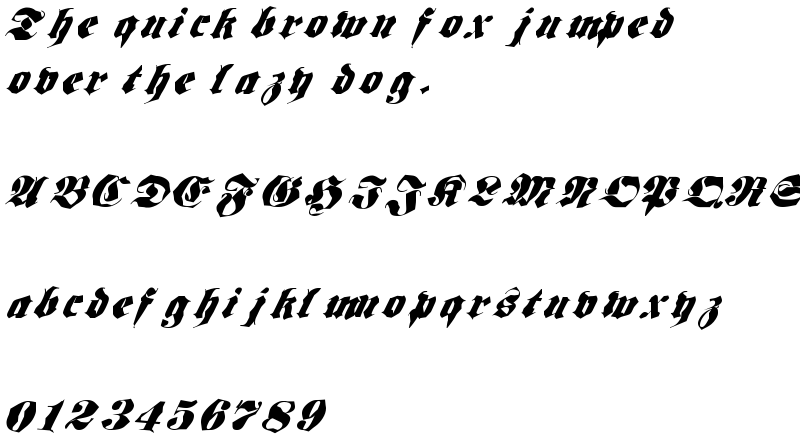 The quick brown fox jumped
over the lazy dog.
ABCDEFGHIJKLMNOPQRS
abcdefghijklmnopqrstuvwxyz
0123456789